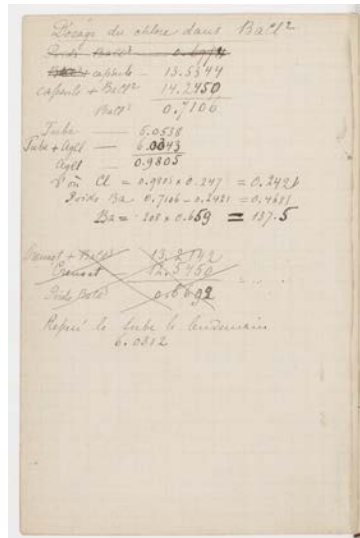 Dosage du chlore dans BaCl²
Poids BaCl²
capsule — 13.5344
capsule + BaCl² 14.2450
BaCl² 0.7106
Tube — 5.0538
Tube + AgCl — 6.0343
AgCl 0.9805
D'où Cl = 0.9805 x 0.247 = 0.2421
Poids Ba 0.7106 - 0.2421 = 0.4685
Ba = 208 x 0.659 = 137.5
Creuset + BaCl² 13.2142
Creuset — 12.5450
Poids BaCl² 0.6692
Repesé le tube le lendemain